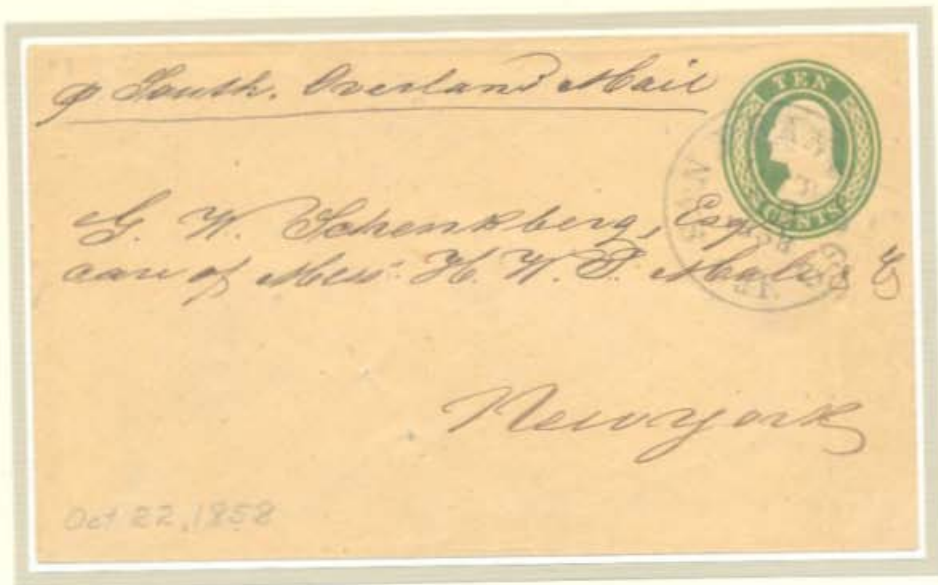 p South. Overland Mail
TEN
CENTS
G. W. Schenkberg, Esq.
care of Mess: H. W. T. Mali & C
New York
Oct 22, 1858